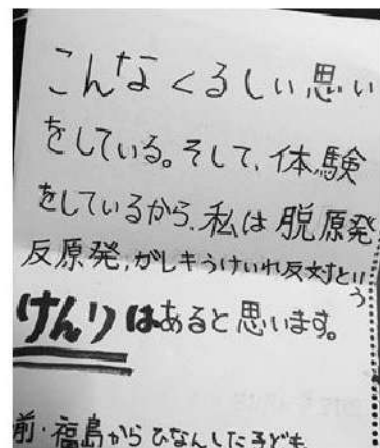 こんなくるしい思い
をしている。そして、体験
をしているから、私は脱原発
反原発,がレキうけいれ反対という
けんりはあると思います。
前・福島からひなんした子ども